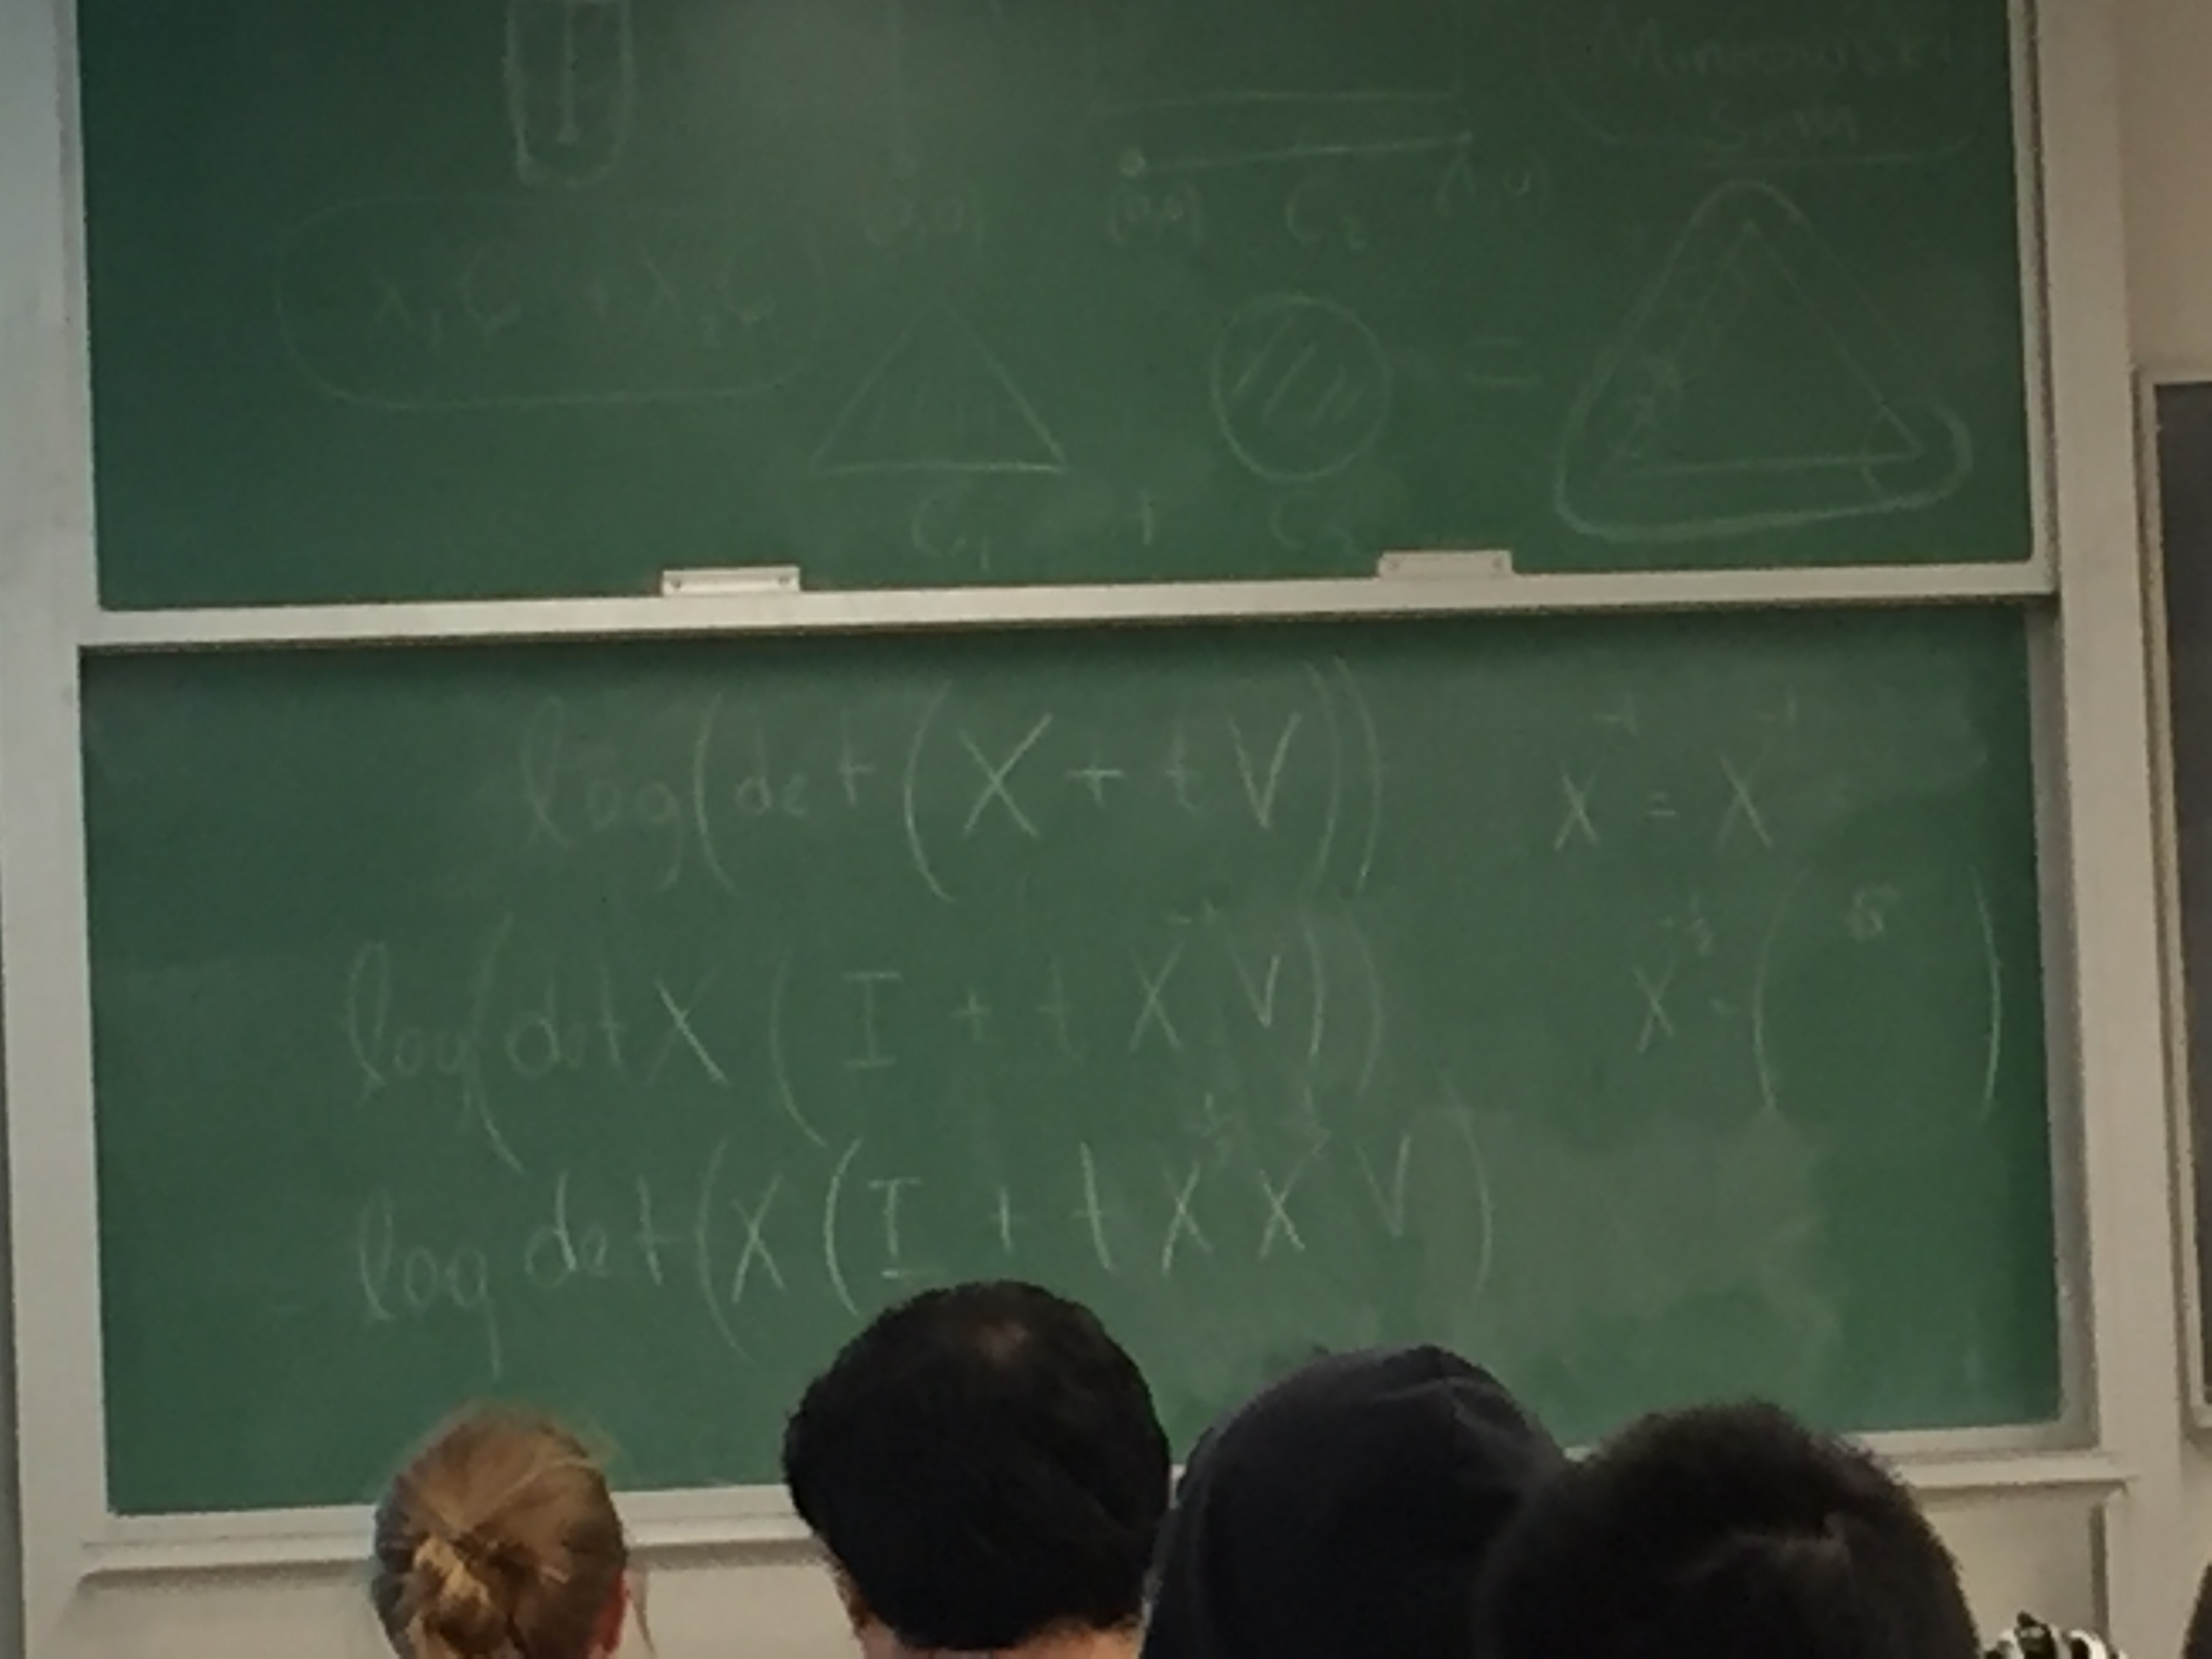 Minkowski
Sum
(0,0) (0,0) C₂ (1,0)
λ₁C₁ + λ₂C₂
=
C₁ + C₂
log(det(X + tV)) X⁻¹ = X⁻¹
log(det X(I + tX⁻¹V)) X^{-½} = ( )
= log det(X(I + tX^{-½}X^{-½}V)